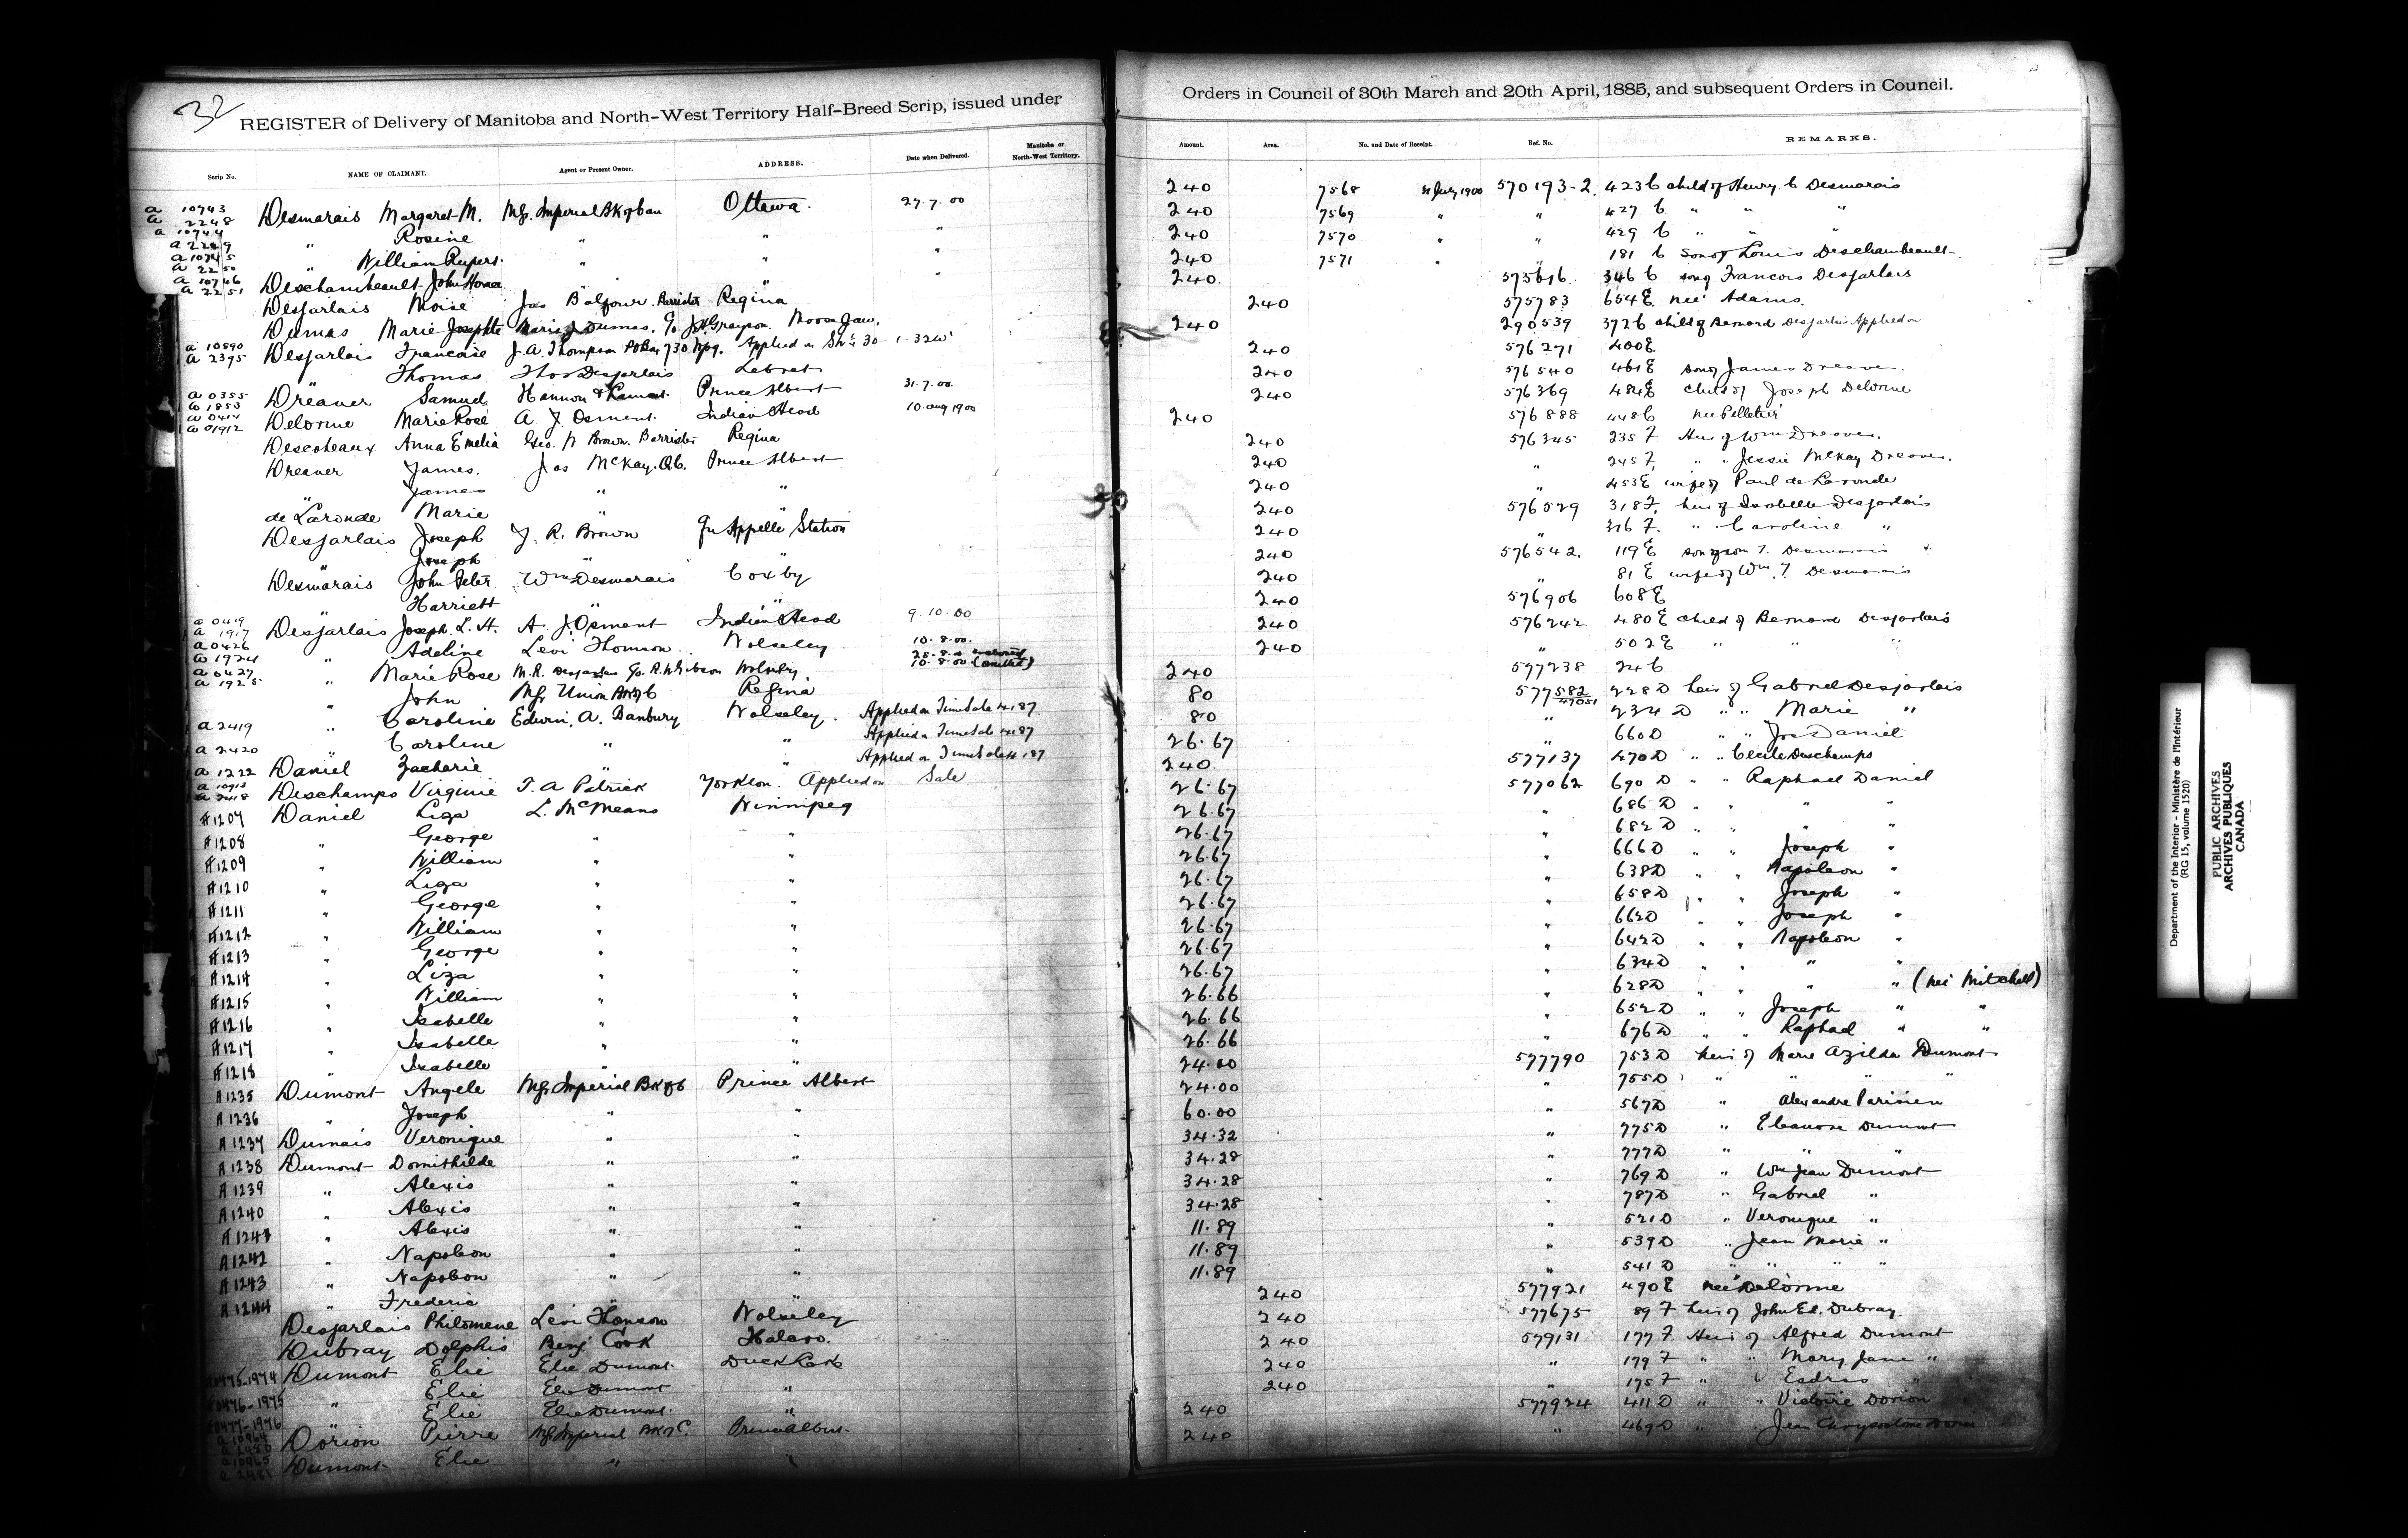 32
REGISTER of Delivery of Manitoba and North-West Territory Half-Breed Scrip, issued under
Scrip No. NAME OF CLAIMANT. Agent or Present Owner. ADDRESS. Date when Delivered. Manitoba or North-West Territory.
a 10743 a 2248 Desmarais Margaret M. Mgr. Imperial BK of Can Ottawa. 27.7.00
a 10744 a 2249 " Rosine " " "
a 10745 a 2250 " William Rupert " " "
a 10746 a 2251 Deschambeault John Horace " " "
Desjarlais Moise Jas Balfour Barrister Regina
Dumas Marie Josephte Marie J Dumas. c/o J.H. Grayson. Moose Jaw.
a 10890 a 2395 Desjarlais Francoise J.A. Thompson PO Box 730 Wpg. Applied on
" Thomas Thos Desjarlais Lebret
a 0355 a 1853 Dreaver Samuel Hannon & Prince Albert 31.7.00.
a 0414 a 01912 Delorme Marie Rose A. J. Osment. Indian Head 10. Aug 1900
Descoteaux Anna Emelia Geo. W. Brown. Barrister Regina
Dreaver James. Jas McKay. Q.C. Prince Albert
" James " "
de Laronde Marie "
Desjarlais Joseph J. R. Brown Qu'Appelle Station
Joseph "
Desmarais John Peter Wm Desmarais Coxby
Harriett " "
a 0419 a 1917 Desjarlais Joseph. L. H. A. J. Osment Indian Head 9.10.00
a 0426 a 1924 " Adeline Levi Thomson Wolseley 10.8.00.
a 0427 a 1925 " Marie Rose M.R. Desjarlais c/o. R.W. Gibson Wolseley. 10.8.00
" John Mgr Union BK of C Regina
a 2419 " Caroline Edwin. A. Banbury Wolseley. Applied on Time Sale 4187
a 2420 " Caroline " " Applied on Time Sale 4187
a 1222 Daniel Zacherie " Applied on Time Sale 4187
a 10913 a 2418 Deschamps Virginie T. A Patrick Yorkton. Applied on Sale
A 1207 Daniel Liza L. McMeans Winnipeg
A 1208 " George " "
A 1209 " William " "
A 1210 " Liza " "
A 1211 " George " "
A 1212 " William " "
A 1213 " George " "
A 1214 " Liza " "
A 1215 " William " "
A 1216 " Isabelle " "
A 1217 " Isabelle " "
A 1218 " Isabelle " "
A 1235 Dumont Angele Mgr Imperial BK of C Prince Albert
A 1236 " Joseph " "
A 1237 Dumais Veronique " "
A 1238 Dumont Domithilde " "
A 1239 " Alexis " "
A 1240 " Alexis " "
A 1241 " Alexis " "
A 1242 " Napoleon " "
A 1243 " Napoleon " "
A 1244 " Frederic " "
Desjarlais Philomene Levi Thomson Wolseley
Dubray Dolphis Benj. Cook Halcro.
0475-1974 Dumont Elie Elie Dumont. Duck Lake
0476-1975 " Elie Elie Dumont "
0477-1976 " Elie Elie Dumont. "
a 10964 Dorion Pierre Mgr Imperial BK of C. Prince Albert.
a 10965 Dumont Elie " "
Orders in Council of 30th March and 20th April, 1885, and subsequent Orders in Council.
Amount. Area. No. and Date of Receipt. Ref. No. REMARKS.
240 7568 31 July 1900 570193-2. 423 C child of Henry. C Desmarais
240 7569 " " 427 C " " "
240 7570 " " 429 C " " "
240 7571 " " 181 C son of Louis Deschambeault
240. 575616. 346 C son of Francois Desjarlais
240 575783 654 E. neé Adams.
240 290539 372 C child of Bernard Desjarlais Applied on
240 576271 400 E.
240 576540 461 E son of James Dreaver.
240 576369 484 E child of Joseph Delorme
240 576888 448 C neé Pelletier
240 576345 235 F Heir of Wm Dreaver.
240 " 245 F. " " Jessie McKay Dreaver.
240 " 453 E wife of Paul de Laronde
240 576529 318 F. heir of Isabelle Desjarlais
240 " 316 F. " " Caroline "
240 576542. 119 E son of Wm T. Desmarais
240 " 81 E wife of Wm. T. Desmarais
240 576906 608 E
240 576242 480 E child of Bernard Desjarlais
240 " 502 E " " "
240 577238 24 C
80 577582 47051 228 D heir of Gabriel Desjarlais
80 " 234 D " " Marie "
26.67 " 660 D " " Jos Daniel
240. 577137 470 D " " Cecile Deschamps
26.67 577062 690 D " " Raphael Daniel
26.67 " 686 D " " " "
26.67 " 682 D " " " "
26.67 " 666 D " " Joseph "
26.67 " 638 D " " Napoleon "
26.67 " 658 D " " Joseph "
26.67 " 662 D " " Joseph "
26.67 " 642 D " " Napoleon "
26.67 " 634 D " " " "
26.66 " 628 D " " " " (neé Mitchell)
26.66 " 652 D " " Joseph " "
26.66 " 676 D " " Raphael " "
24.00 577790 753 D heir of Marie Azilda Dumont
24.00 " 755 D " " " "
60.00 " 567 D " Alexandre Parisien
34.32 " 775 D " Eleanore Dumont
34.28 " 777 D " " "
34.28 " 769 D " Wm Jean Dumont
34.28 " 787 D " Gabriel "
11.89 " 521 D " Veronique "
11.89 " 539 D " Jean Marie "
11.89 " 541 D " " " "
240 577921 490 E neé Delorme
240 577675 89 F heir of John Ed. Dubray.
240 579131 177 F Heir of Alfred Dumont
240 " 179 F " " Mary Jane "
240 " 175 F " " Esdras "
240 577924 411 D " " Victoire Dorion
240 " 469 D " " Jean Chrysostome
Department of the Interior - Ministère de l'Intérieur
(RG 15, volume 1520)
PUBLIC ARCHIVES
ARCHIVES PUBLIQUES
CANADA